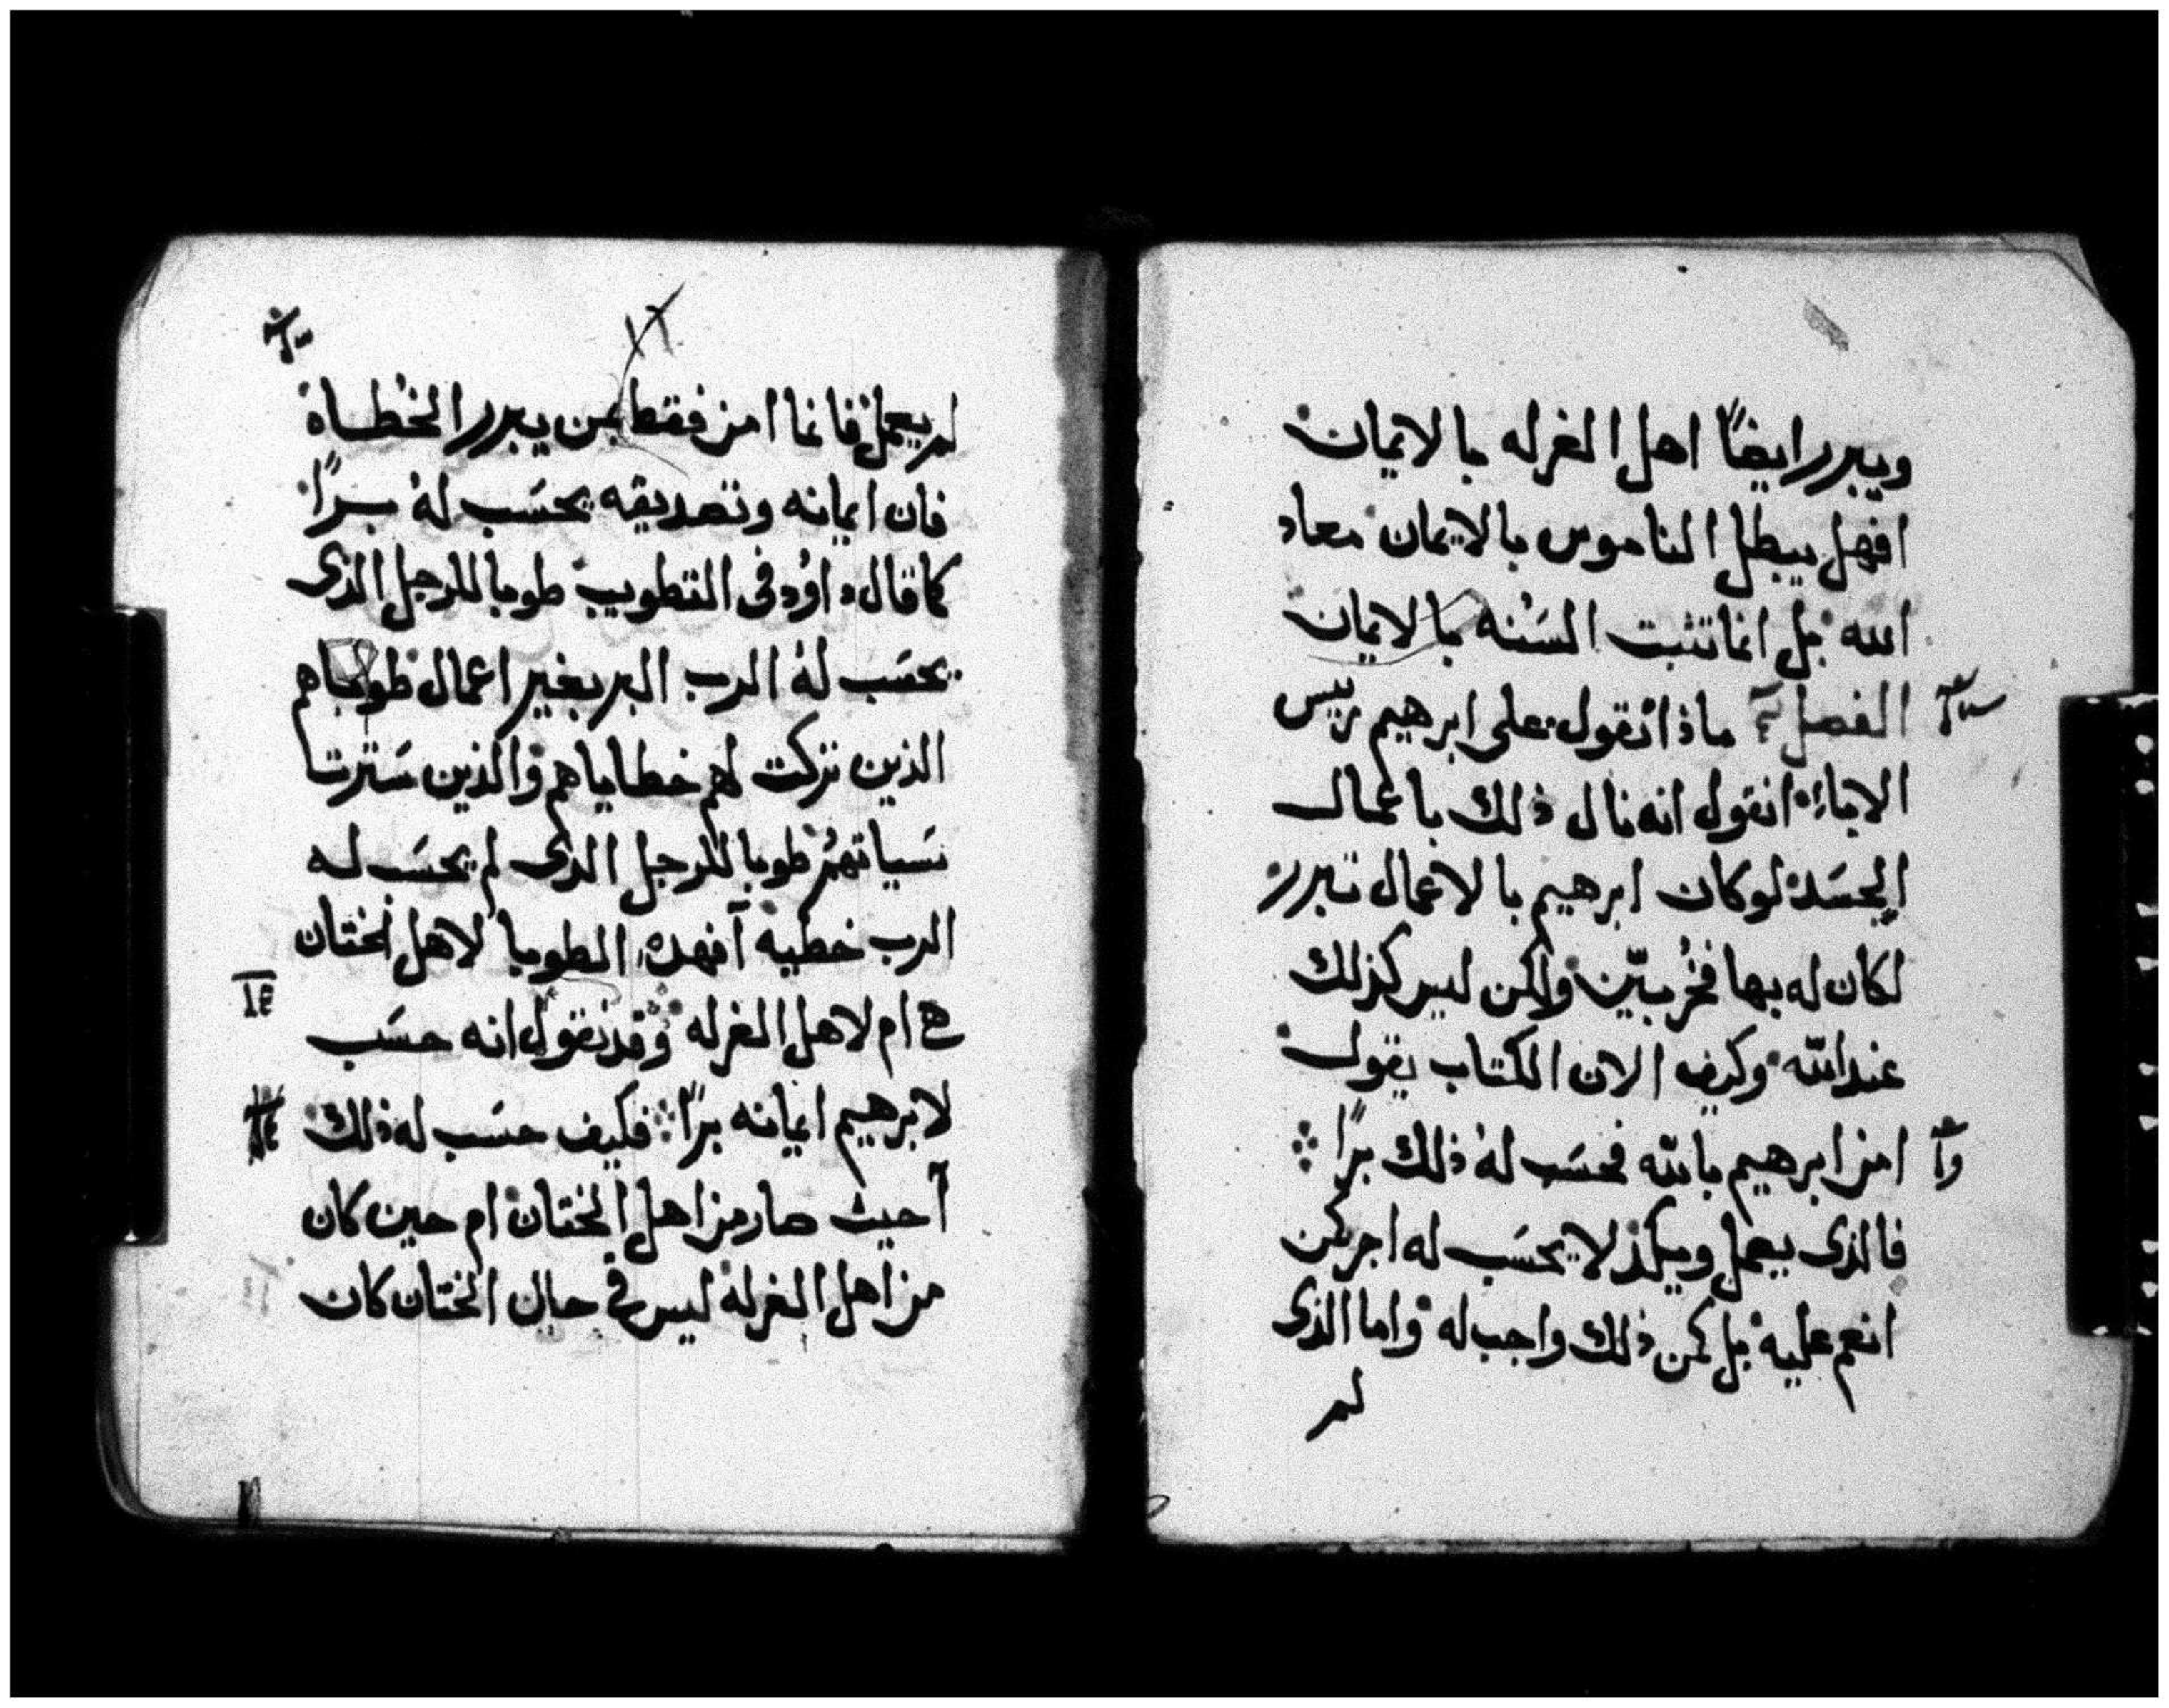 ويبرر ايضًا اهل الغرله بالايمان
افهل يبطل الناموس بالايمان معاد
الله بل انما تثبت السَنه بالايمان
الفصل ماذا نقول على ابرهيم ريس
الاباء انقول انه نال ذلك باعمال
الجسَد لو كان ابرهيم بالاعمال تبرر
لكان له بها فخرُ بيّن ولكن ليس كذلك
عند الله وكيف الان الكتاب يقول
امن ابرهيم بالله فحسَب لهُ ذلك برًا
فالذى يعمل ويكد لا يحسَب له اجر كمن
انعم عليه بل كمن ذلك واجب له واما الذى
لم
١٦
لم يعمل فانما امن فقط بمن يبرر الخطاة
فان ايمانه وتصديقه يحسَب لهُ برًا
كما قال داوُد فى التطويب طوبا للرجل الذى
يحسَب لهُ الرب البر بغير اعمال طوباهم
الذين تركت لهم خطاياهم والذين سَترت
سَياتهم طوبا للرجل الذى لم يحسَب له
الرب خطيه آفهده الطوبا لاهل الختان
هى ام لاهل الغرله وقد نقول انه حسَب
لابرهيم ايمانه برًا فكيف حسَب له ذلك
آحيث صار من اهل الختان ام حين كان
من اهل الغرله ليس فى حال الختان كان